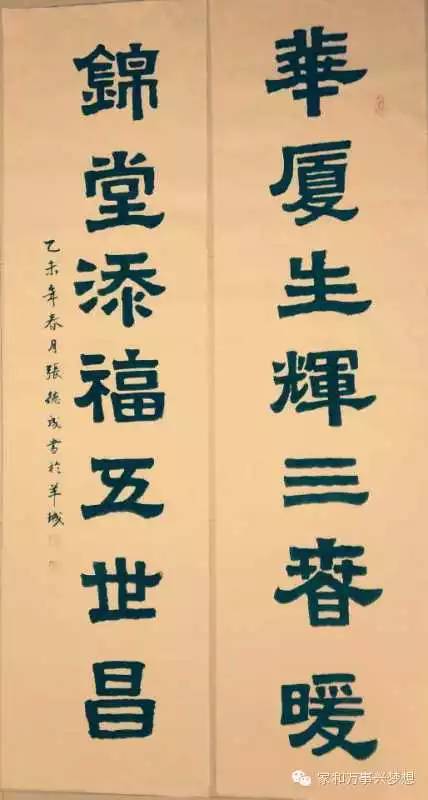 華厦生輝三春暖
錦堂添福五世昌
乙未年春月張德成書於羊城
家和万事兴梦想